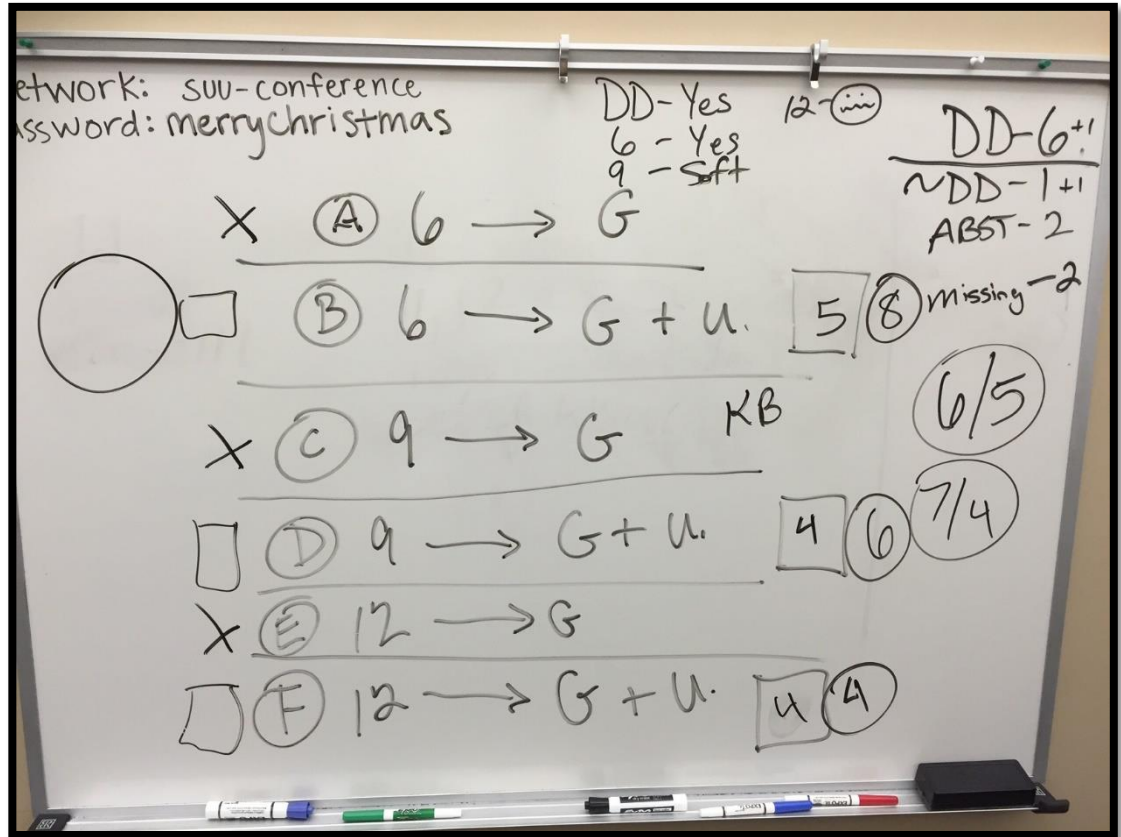 etwork: suu-conference
ssword: merrychristmas
DD-Yes
6 - Yes
9 - Soft
12-
DD-6+!
~DD-1+1
ABST-2
missing-2
X A 6 → G
B 6 → G + U. 5 8
6/5
X C 9 → G KB
D 9 → G + U. 4 6
7/4
X E 12 → G
F 12 → G + U. 4 4